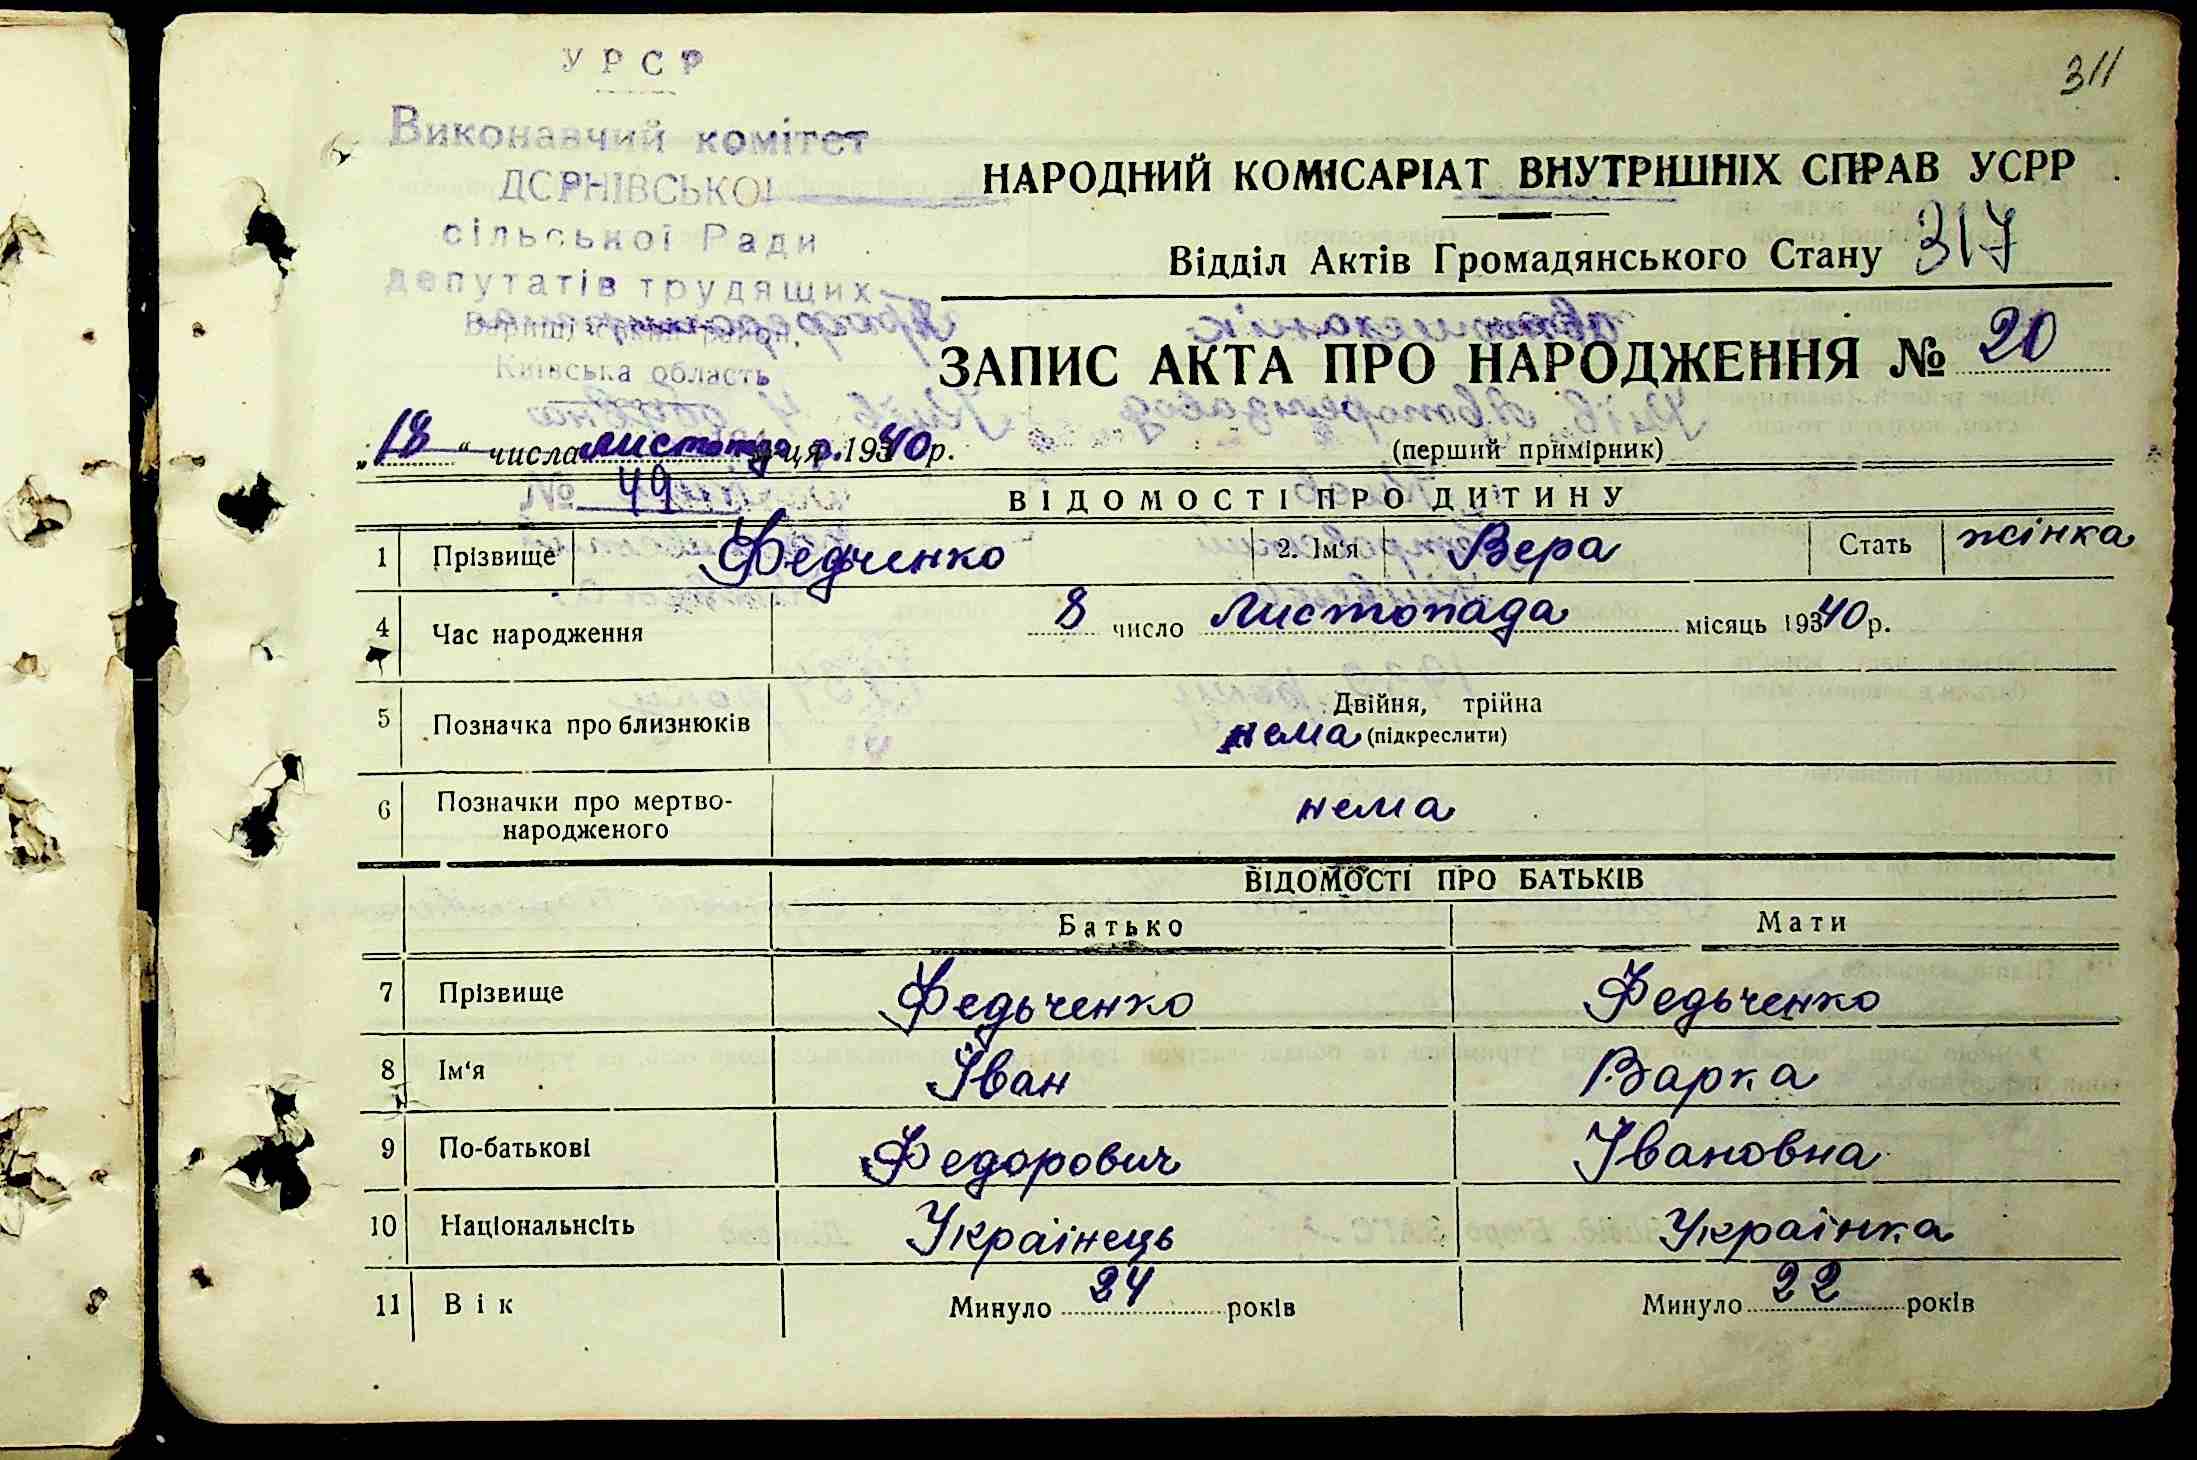 311
УРСР
Виконавчий комітет
ДЄРНІВСЬКОЇ
сільської Ради
депутатів трудящих
район,
Київська область
№ 49
НАРОДНИЙ КОМІСАРІАТ ВНУТРІШНІХ СПРАВ УСРР
Відділ Актів Громадянського Стану 317
ЗАПИС АКТА ПРО НАРОДЖЕННЯ № 20
„18“ числа листопада ця р. 1940 р. (перший примірник)
ВІДОМОСТІ ПРО ДИТИНУ
1 Прізвище Федченко 2. Ім'я Вера Стать жінка
4 Час народження 8 число Листопада місяць 19340 р.
5 Позначка про близнюків Двійня, трійна
нема (підкреслити)
6 Позначки про мертво-
народженого нема
ВІДОМОСТІ ПРО БАТЬКІВ
Батько Мати
7 Прізвище Федьченко Федьченко
8 Ім'я Іван Варка
9 По-батькові Федорович Івановна
10 Національнсіть Украінець Украінка
11 Вік Минуло 24 років Минуло 22 років